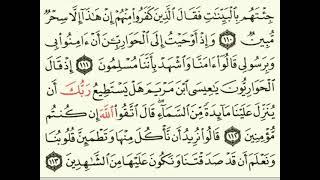 جِئْتَهُم بِالْبَيِّنَاتِ فَقَالَ الَّذِينَ كَفَرُوا مِنْهُمْ إِنْ هَٰذَا إِلَّا سِحْرٌ
مُّبِينٌ ١١٠ وَإِذْ أَوْحَيْتُ إِلَى الْحَوَارِيِّينَ أَنْ ءَامِنُوا بِي
وَبِرَسُولِي قَالُوا ءَامَنَّا وَاشْهَدْ بِأَنَّنَا مُسْلِمُونَ ١١١ إِذْ قَالَ
الْحَوَارِيُّونَ يَٰعِيسَى ابْنَ مَرْيَمَ هَلْ يَسْتَطِيعُ رَبُّكَ أَن
يُنَزِّلَ عَلَيْنَا مَآئِدَةً مِّنَ السَّمَآءِ قَالَ اتَّقُوا اللَّهَ إِن كُنتُم
مُّؤْمِنِينَ ١١٢ قَالُوا نُرِيدُ أَن نَّأْكُلَ مِنْهَا وَتَطْمَئِنَّ قُلُوبُنَا
وَنَعْلَمَ أَن قَدْ صَدَقْتَنَا وَنَكُونَ عَلَيْهَا مِنَ الشَّٰهِدِينَ ١١٣